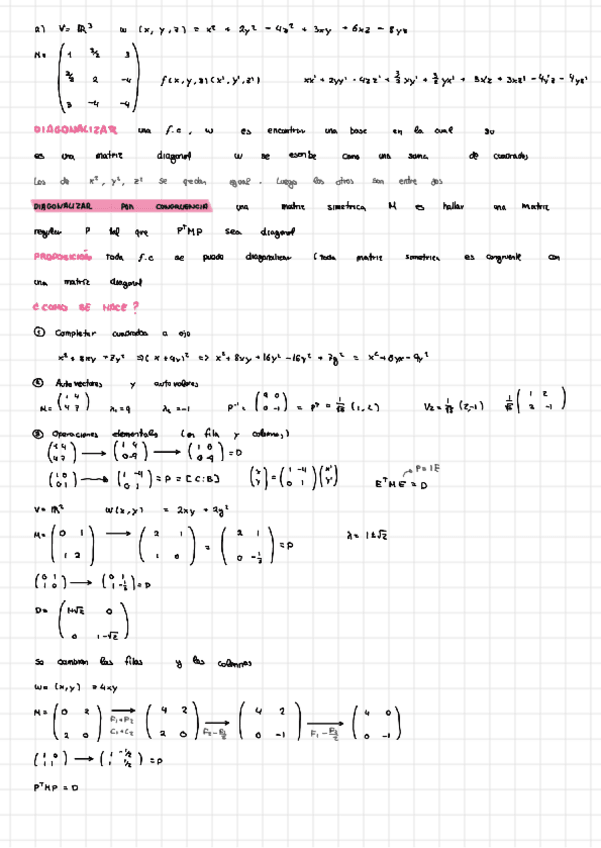 2) V= ℝ³ ω (x, y, z) = x² + 2y² - 4z² + 3xy + 6xz - 8yz
M= ( 1 3/2 3 ; 3/2 2 -4 ; 3 -4 -4 ) f(x, y, z)(x', y', z') xx' + 2yy' - 4zz' + 3/2 xy' + 3/2 yx' + 3x'z + 3xz' - 4y'z - 4yz'
DIAGONALIZAR una f.c, ω es encontrar una base en la cual su
es una matriz diagonal ω se escribe como una suma de cuadrados
Los de x², y², z² se quedan igual. Luego los otros son entre dos
DIAGONALIZAR POR CONGRUENCIA una matriz simetrica M es hallar una matriz
regular P tal que PᵀMP sea diagonal
PROPOSICIÓN Toda f.c se puede diagonalizar (Toda matriz simetrica es congruente con
una matriz diagonal
¿COMO SE HACE?
① Completar cuadrados a ojo
x² + 8xy + 7y² => (x + 4y)² => x² + 8xy + 16y² - 16y² + 7y² = x² + 8yx - 9y²
② Autovectores y autovalores
M= ( 1 4 ; 4 7 ) λ₁ = 9 λ₂ = -1 P⁻¹ = ( 9 0 ; 0 -1 ) = Pᵀ = 1/√5 (1, 2) V₂ = 1/√5 (2, -1) 1/√5 ( 1 2 ; 2 -1 )
③ Operaciones elementales (en fila y columna)
( 1 4 ; 4 7 ) → ( 1 4 ; 0 -9 ) → ( 1 0 ; 0 -9 ) = D
( 1 0 ; 0 1 ) → ( 1 -4 ; 0 1 ) = P = [C:B] ( x ; y ) = ( 1 -4 ; 0 1 ) ( x' ; y' ) EᵀME = D P = IE
V= ℝ² ω(x, y) = 2xy + 2y²
M= ( 0 1 ; 1 2 ) → ( 2 1 ; 1 0 ) = ( 2 1 ; 0 -1/2 ) = D λ = 1±√2
( 0 1 ; 1 0 ) → ( 0 1 ; 1 -1/2 ) = D
D= ( 1+√2 0 ; 0 1-√2 )
Se cambian las filas y las columnas
ω= (x, y) = 4xy
M= ( 0 2 ; 2 0 ) F₁+F₂ C₁+C₂ → ( 4 2 ; 2 0 ) F₂-F₁/2 → ( 4 2 ; 0 -1 ) → ( 4 0 ; 0 -1 )
( 1 0 ; 1 1 ) → ( 1 -1/2 ; 1 1/2 ) = P
PᵀMP = D